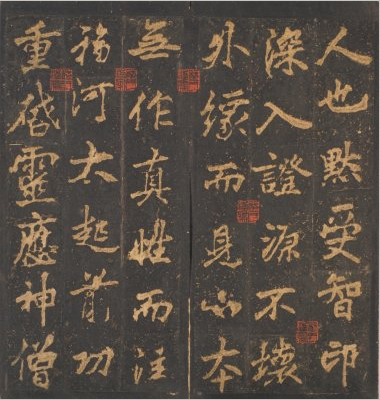 人也默受智印
深入證源不壞
外緣而見心本
無作真性而注
福河太起前功
重啓靈應神僧